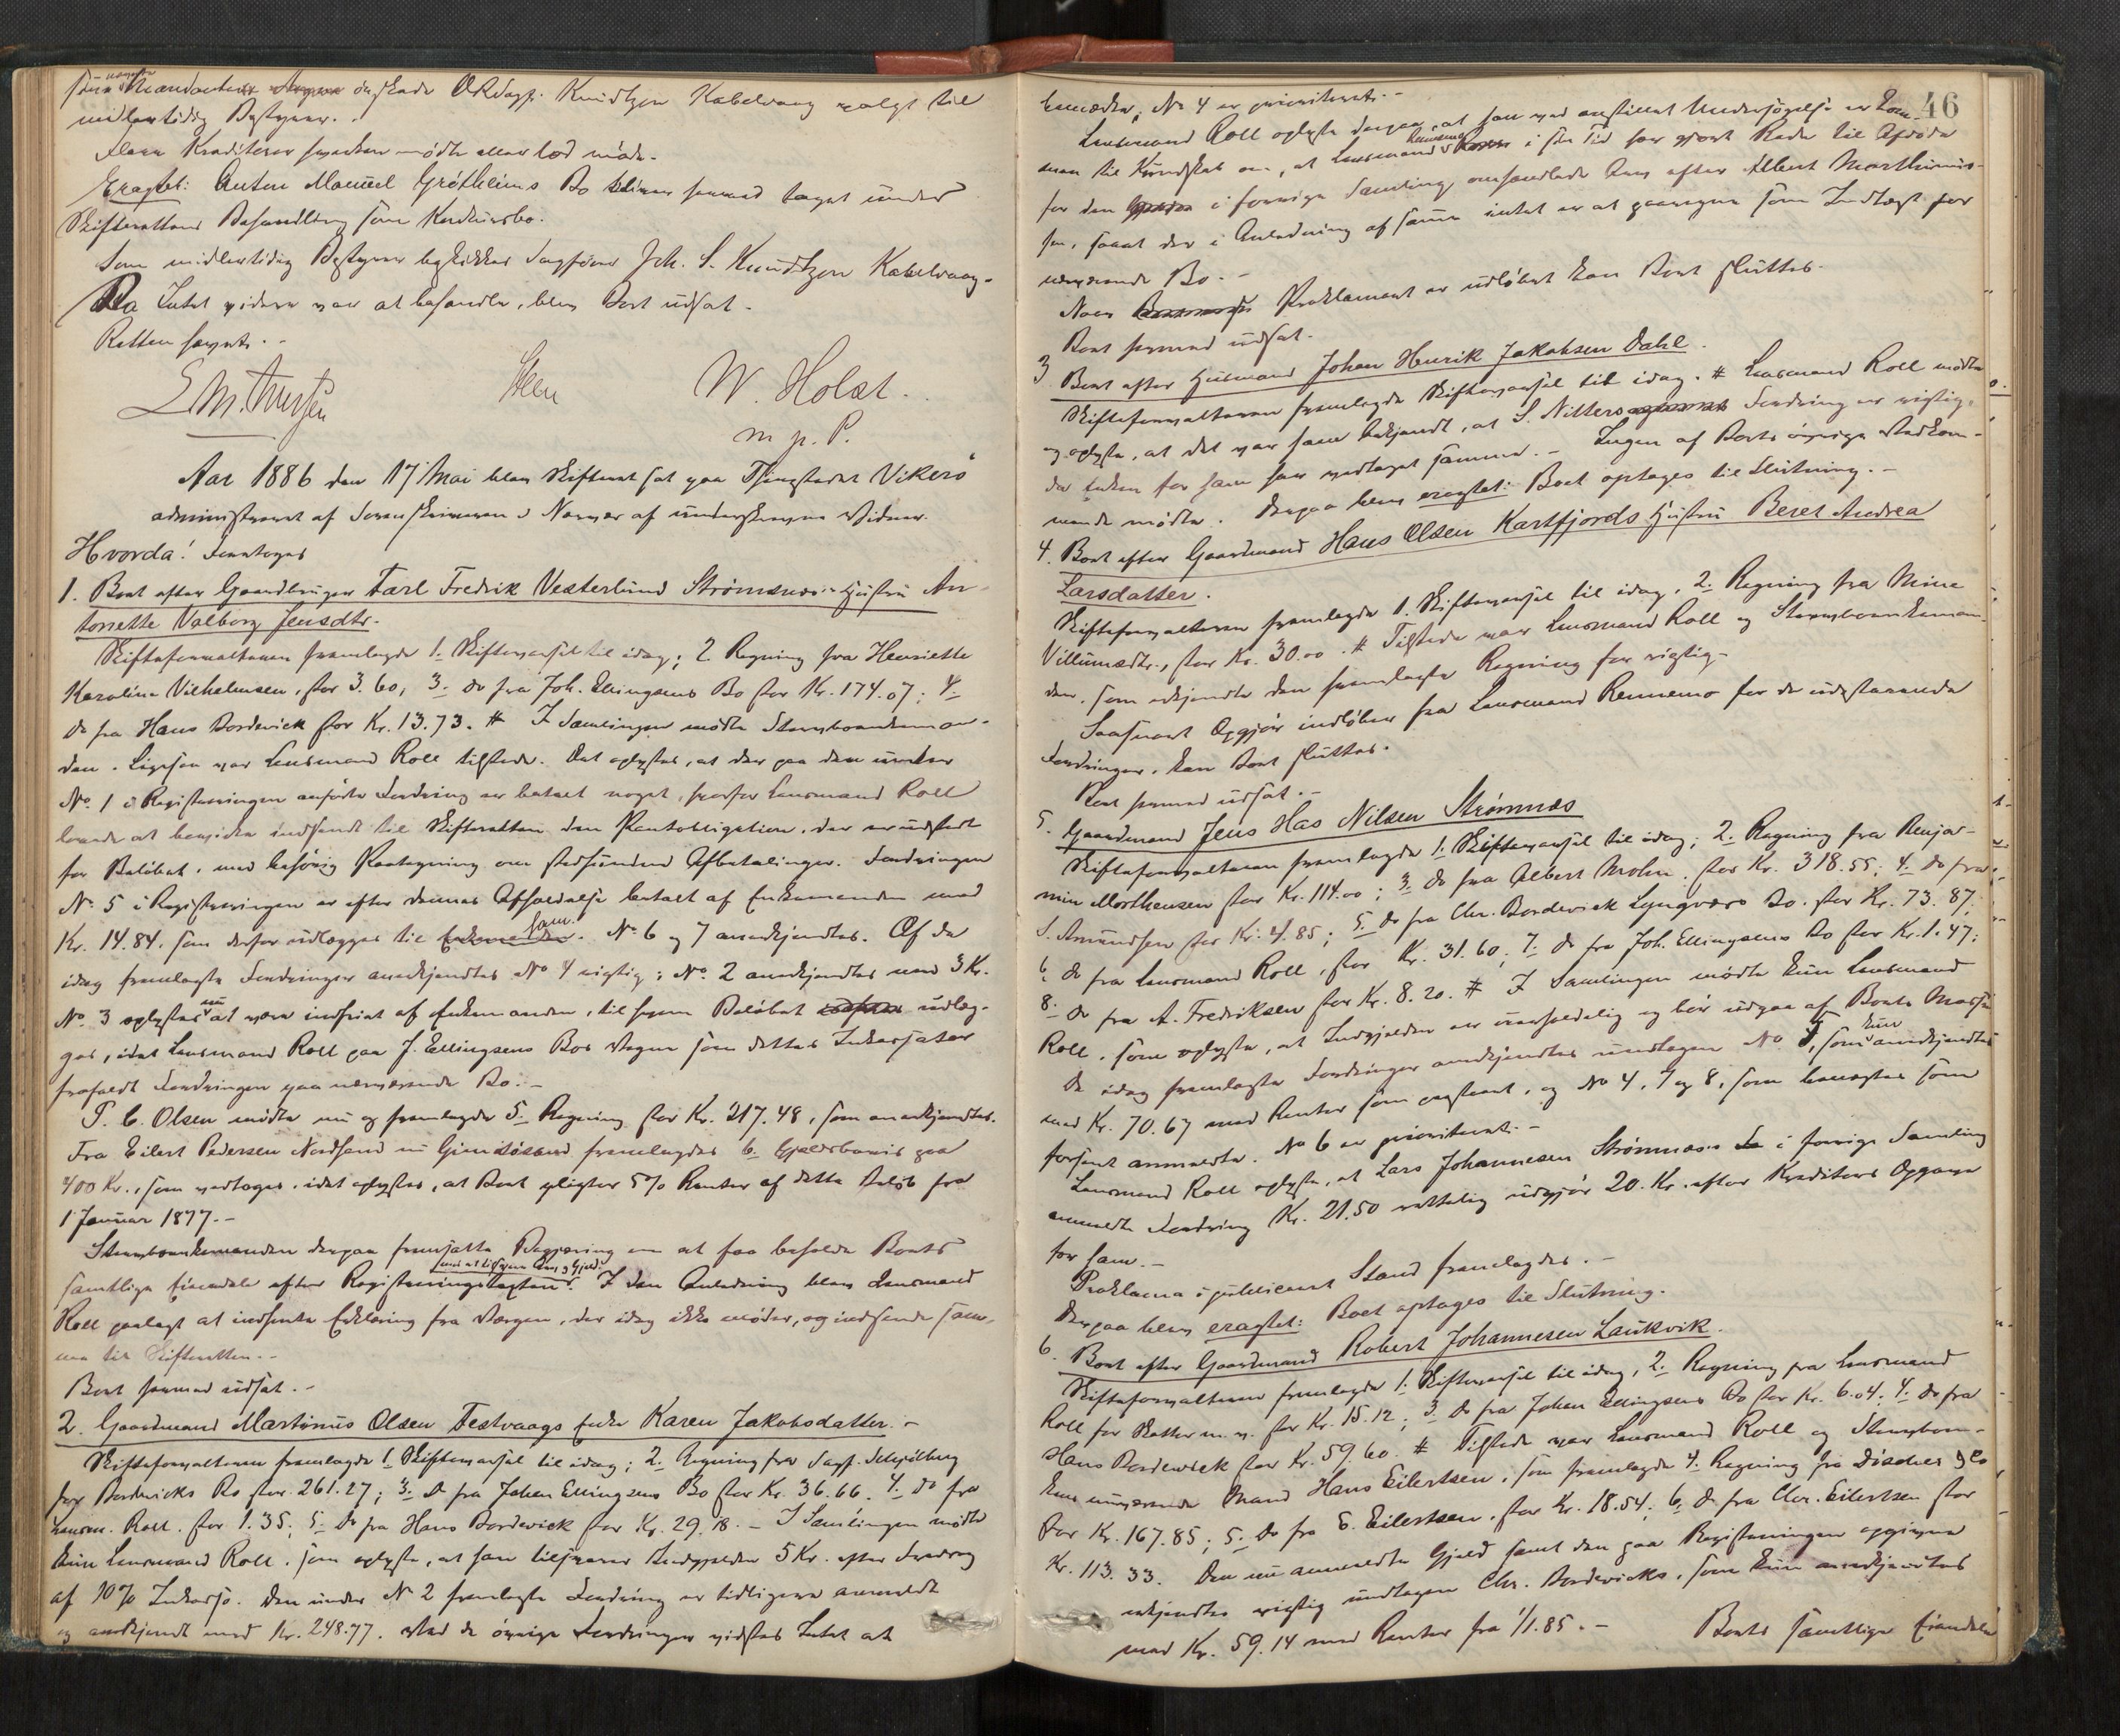 sine Mandanter ønskede OR.Sagf. Knudtzon Kabelvaag valgt til
midlertidig Bestyrer.
Flere Kreditorer hverken mødte eller lod møde.
Eragtet: Anton Manuel Grøtheims Bo bliver herved taget under
Skifterettens Behandling som Konkursbo.
Som midlertidig Bestyrer beskikkes Sagfører Joh. S. Knudtzon Kabelvaag.
Da Intet videre var at behandle, blev Boet udsat.
Retten hævet.
Steen W. Holst.
m. p. P.
Aar 1886 den 17 Mai blev Skifteret sat paa Thingstedet Vikerø
administreret af Sorenskriveren i Nærvær af underskrevne Vidner.
Hvorda! Foretoges
1. Boet efter Gaardbruger Carl Fredrik Vesterlund Strømsnes's Hustru An-
tonette Valborg Jensdtr.
Skifteforvalteren fremlagde 1. Skiftevarsel til idag; 2. Regning fra Henriette
Karoline Vilhelmsen, stor 3.60; 3. do fra Joh. Ellingsens Bo stor Kr. 174.07; 4.
do fra Hans Bordevick stor Kr. 13.73. # I Samlingen mødte Stervboenkeman-
den. Ligesaa var Lensmand Roll tilstede. Det oplystes, at der paa den under
No. 1 i Registreringen anførte Fordring er betalt noget, hvorfor Lensmand Roll
lovede at bevirke indsendt til Skifteretten den Pantobligation, der er udstedt
for Beløbet, med behørig Paategning om stedfundne Afbetalinger. Fordringen
No. 5 i Registreringen er efter dennes Afholdelse betalt af Enkemanden med
Kr. 14.84, som derfor udlægges til ham. No. 6 og 7 anerkjendtes. Af de
idag fremlagte Fordringer anerkjendtes No 4 rigtig; No. 2 anerkjendtes med 3 Kr.
No. 3 oplystes nu at være indfriet af Enkemanden, til hvem Beløbet udlæg-
ges, idet Lensmand Roll paa J. Ellingsens Bos Vegne som dettes Inkassator
frafaldt Fordringen paa nærværende Bo.-
P. C. Olsen mødte nu og fremlagde 5. Regning stor Kr. 217.48, som anerkjendtes.
Fra Eilert Pedersen Nordsend i Gimsøsand fremlagdes 6. Gjældsbevis paa
400 Kr., som vedtoges, idet oplystes, at Boet pligter 5% Renter af dette Beløb fra
1 Januar 1877.-
Stervboenkemanden derpaa fremsatte Begjæring om at faa beholde Boets
samtlige Eiendele efter Registreringstaxten mod at tilsvare Arv og Gjæld. I den Anledning blev Lensmand
Roll paalagt at indhente Erklæring fra Værgen, der idag ikke møder, og indsende sam-
me til Skifteretten.-
Boet hermed udsat.-
2. Gaardmand Martinus Olsen Festvaags Enke Karen Jakobsdatter.-
Skifteforvalteren fremlagde 1. Skiftevarsel til idag; 2. Regning fra Sagf. Schjølberg
for Bordevicks Bo stor 261.27; 3. do fra Johan Ellingsens Bo stor Kr. 36.66. 4. do fra
Lensm. Roll. stor 1.35; 5. do fra Hans Bordevick stor Kr. 29.18.- I Samlingen mødte
kun Lensmand Roll, som oplyste, at han tilsvarer Indgjælden 5 Kr. efter Fradrag
af 10% Inkasso. Den under No 2 fremlagte Fordring er tidligere anmeldt
og anerkjendt med Kr. 248.77. Mod de øvrige Fordringer vidstes Intet at
46
bemærke. No 4 er prioriteret.-
Lensmand Roll oplyste derpaa, at han ved anstillet Undersøgelse er kom-
men til Kundskab om, at Lensmand Rennemo i sin Tid har gjort Rede til Afdøde
for den i forrige Samling omhandlede Arv efter Albert Marthinus-
sen, saaat der i Anledning af samme intet er at paaregne som Indtægt for
nærværende Bo.-
Naar Proklamaet er udløbet kan Boet sluttes.
Boet hermed udsat.
3 Boet efter Husmand Johan Henrik Jakobsen Dahl.
Skifteforvalteren fremlagde Skiftevarsel til idag. # Lensmand Roll mødte
og oplyste, at det var ham bekjendt, at S. Nitters Fordring er rigtig,
da Enken for ham har vedtaget samme.- Ingen af Boets øvrige Vedkom-
mende mødte. Derpaa blev eragtet: Boet optages til Slutning.-
4. Boet efter Gaardmand Hans Olsen Kartfjords Hustru Beret Andrea
Larsdatter.
Skifteforvalteren fremlagde 1. Skiftevarsel til idag, 2. Regning fra Mine
Villumsdtr., stor Kr. 30.00. # Tilstede var Lensmand Roll og Stervboenkeman-
den, som erkjendte den fremlagte Regning for rigtig.-
Saasnart Opgjør indløber fra Lensmand Rennemo for de udestaaende
Fordringer, kan Boet sluttes.
Boet hermed udsat.-
5. Gaardmand Jens Has Nilsen Strømnæs
Skifteforvalteren fremlagde 1. Skiftevarsel til idag; 2. Regning fra Benja-
min Morthensen stor Kr. 114.00; 3. do fra Albert Mohn, stor Kr. 318.55; 4. do fra
S. Amundsen stor Kr. 4.85; 5. do fra Chr. Bordevick Lyngværs Bo. stor Kr. 73.87;
6 do fra Lensmand Roll, stor Kr. 31.60; 7. do fra Joh. Ellingsens Bo stor Kr. 1.47;
8. do fra A. Fredriksen stor Kr. 8.20. # I Samlingen mødte kun Lensmand
Roll, som oplyste, at Indgjælden er uerholdelig og bør udgaa af Boets Masse.
De idag fremlagte Fordringer anerkjendtes undtagen No. 5, som kun anerkjendtes
med Kr. 70.67 med Renter som paastaaet, og No 4, 7 og 8, som benægtes som
forsent anmeldte. No 6 er prioriteret.-
Lensmand Roll oplyste, at Lars Johannesen Strømnæs's i forrige Samling
anmeldte Fordring Kr. 21.50 rettelig udgjør 20. Kr. efter Kreditors Opgave
for ham.-
Proklama i publiceret Stand fremlagdes.-
Derpaa blev eragtet: Boet optages til Slutning.
6. Boet efter Gaardmand Robert Johannesen Laukvik.
Skifteforvalteren fremlagde 1. Skiftevarsel til idag, 2. Regning fra Lensmand
Roll for Skatter m. v. stor Kr. 15.12; 3. do fra Johan Ellingsens Bo stor Kr. 6.04; 4. do fra
Hans Bordewick stor Kr. 59.60. # Tilstede var Lensmand Roll og Stervboen-
kens nuværende Mand Hans Eilertsen, som fremlagde 4. Regning fra Discher & Co
stor Kr. 167.85; 5. do fra E. Eilertsen, stor Kr. 18.54; 6. do fra Chr. Eilertsen stor
Kr. 113.33. Den nu anmeldte Gjæld samt den paa Registreringen opgivne
erkjendtes rigtig undtagen Chr. Bordevicks, som kun anerkjendtes
med Kr. 59.14 med Renter fra 1/1.85.- Boets samtlige Eiendele